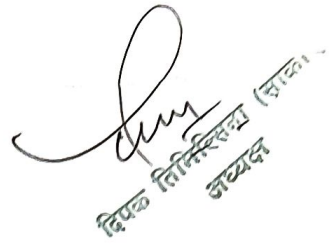 दिपक तिमिल्सिना (साका..
अध्यक्ष